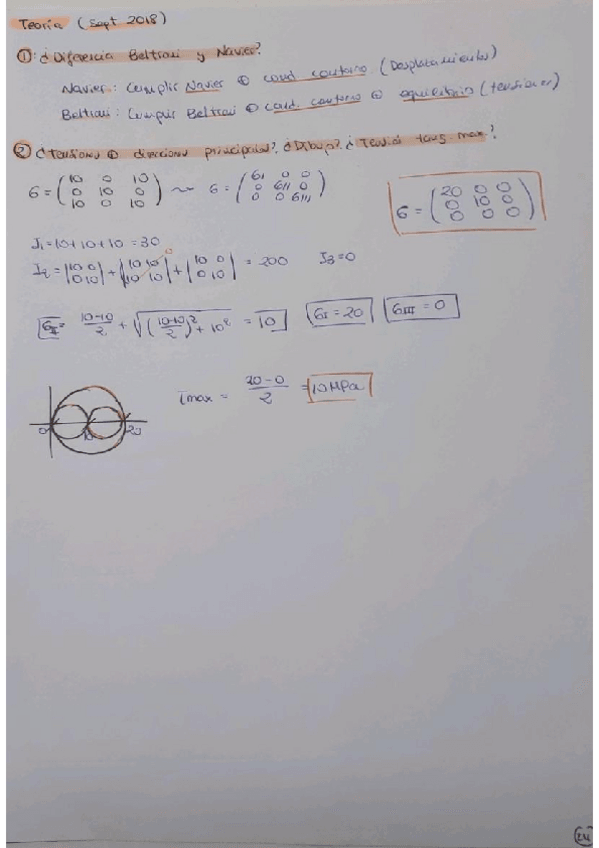 Teoría (Sept 2018)
① ¿Diferencia Beltrami y Navier?
Navier: Cumplir Navier ⊕ cond contorno (Desplazamiento)
Beltrami: Cumplir Beltrami ⊕ cond. contorno ⊕ equilibrio (tensiones)
② ¿Tensiones ⊕ direcciones principales? ¿Dibujo? ¿Tensión tang max?
σ = (10 0 10
0 10 0
10 0 10) ~ σ = (σI 0 0
0 σII 0
0 0 σIII)
σ = (20 0 0
0 10 0
0 0 0)
J1 = 10 + 10 + 10 = 30
I2 = |10 0
0 10| + |10 10
10 10| 0 + |10 0
0 10| = 200 J3 = 0
σII = 10+10/2 + √((10-10/2)² + 10²) = 10 σI = 20 σIII = 0
τmax = 20-0/2 = 10 MPa
0 10 20
24